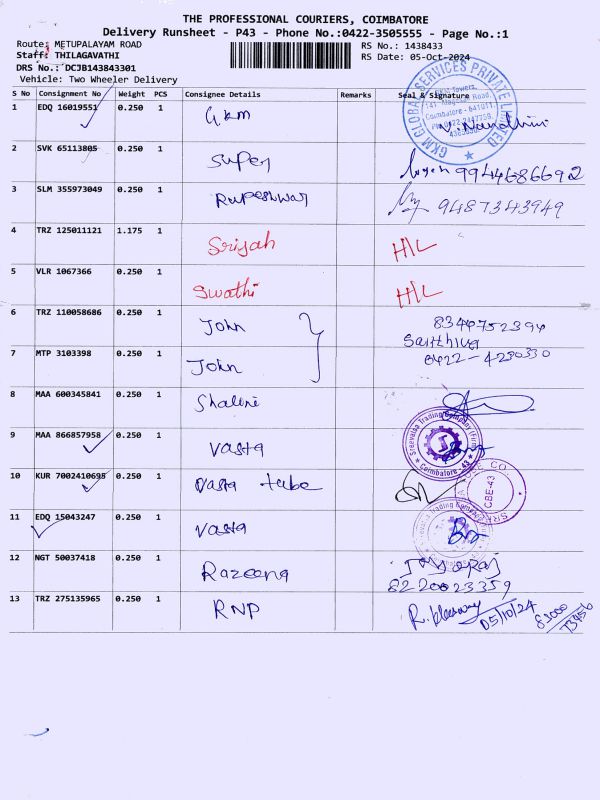 THE PROFESSIONAL COURIERS, COIMBATORE
Delivery Runsheet - P43 - Phone No.:0422-3505555 - Page No.:1
Route: METUPALAYAM ROAD RS No.: 1438433
Staff: THILAGAVATHI RS Date: 05-Oct-2024
DRS No.: DCJB143843301
Vehicle: Two Wheeler Delivery
S No Consignment No Weight PCS Consignee Details Remarks Seal & Signature
1 EDQ 16019551 0.250 1 Gkm V. Nandhini
GKM GLOBAL SERVICES PRIVATE LIMITED
2 SVK 65113805 0.250 1 Super 9944686692
3 SLM 355973049 0.250 1 Rupeshwar 9487343949
4 TRZ 125011121 1.175 1 Srijah H/L
5 VLR 1067366 0.250 1 Swathi H/L
6 TRZ 110058686 0.250 1 John 8344752394
7 MTP 3103398 0.250 1 John 0422-4230330
8 MAA 600345841 0.250 1 Shalini
9 MAA 866857958 0.250 1 Vasta
Sreevatsa Trading Company (Firm) Coimbatore - 43
10 KUR 7002410695 0.250 1 Vasta tube
CBE-43
11 EDQ 15043247 0.250 1 Vasta
12 NGT 50037418 0.250 1 Razeena Jayaraj
8220023359
13 TRZ 275135965 0.250 1 RNP 05/10/24